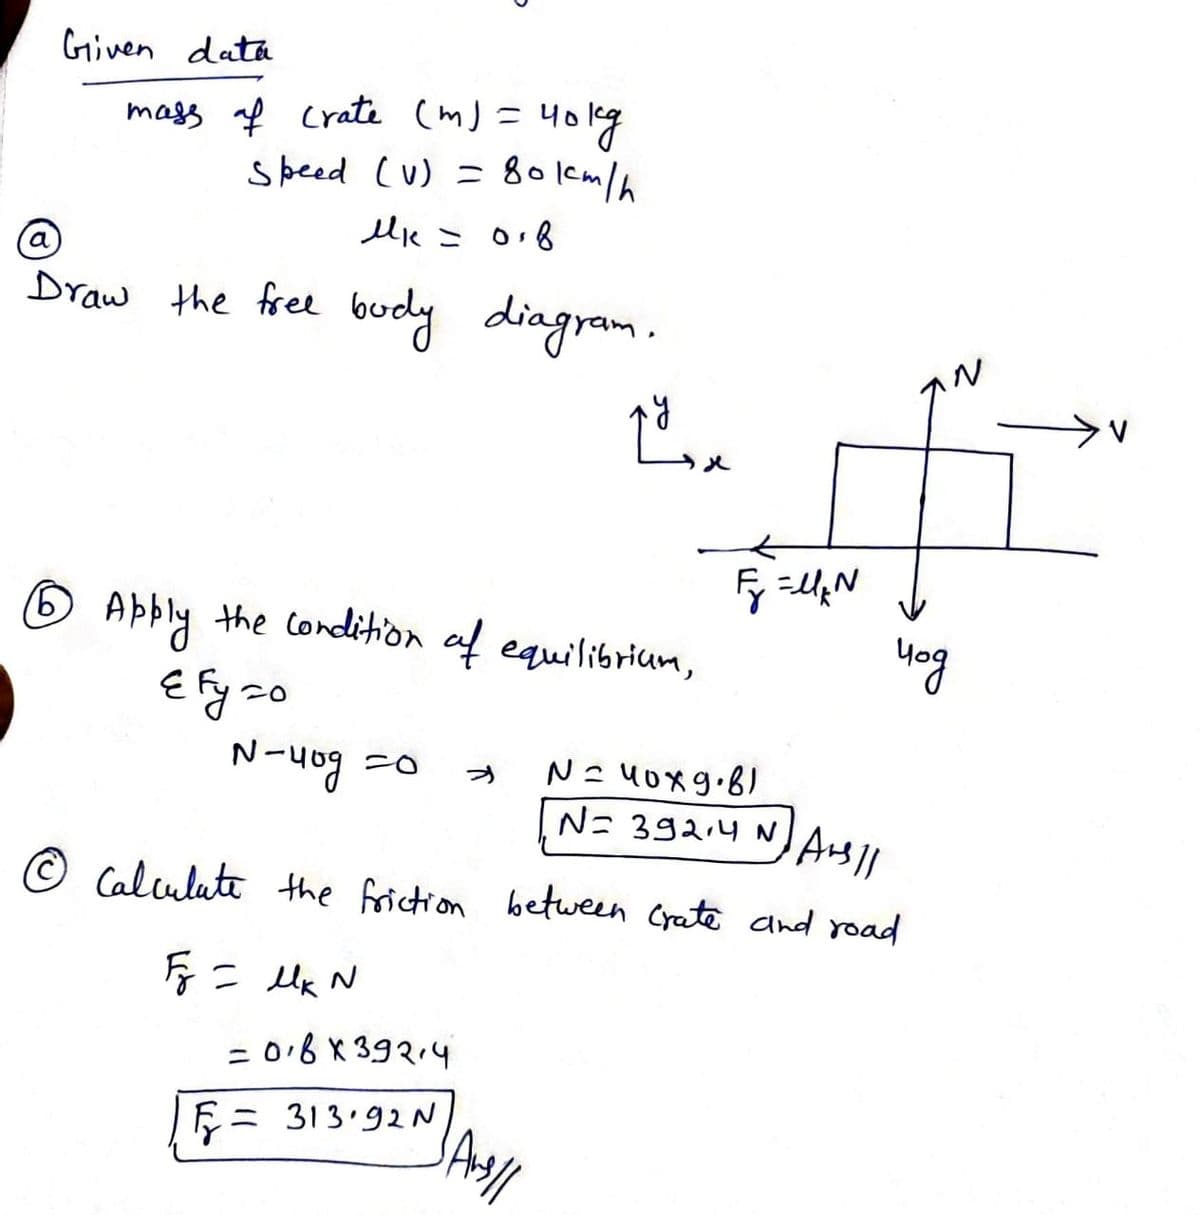 Given data
mass of crate (m) = 40 kg
Speed (v) = 80 km/h
μk = 0.8
(a)
Draw the free body diagram.
N
y
v
x
Fr = μkN
40g
(b) Apply the condition of equilibrium,
ΣFy = 0
N - 40g = 0 ⇒ N = 40 × 9.81
N = 392.4 N Ans//
(c) Calculate the friction between crate and road
Fr = μk N
= 0.8 × 392.4
Fr = 313.92 N
Ans//